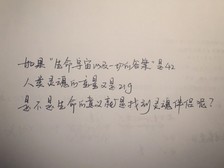 如果“生命、宇宙以及一切的答案”是42
人类灵魂的重量又是21g
是不是生命的意义就是找到灵魂伴侣呢？